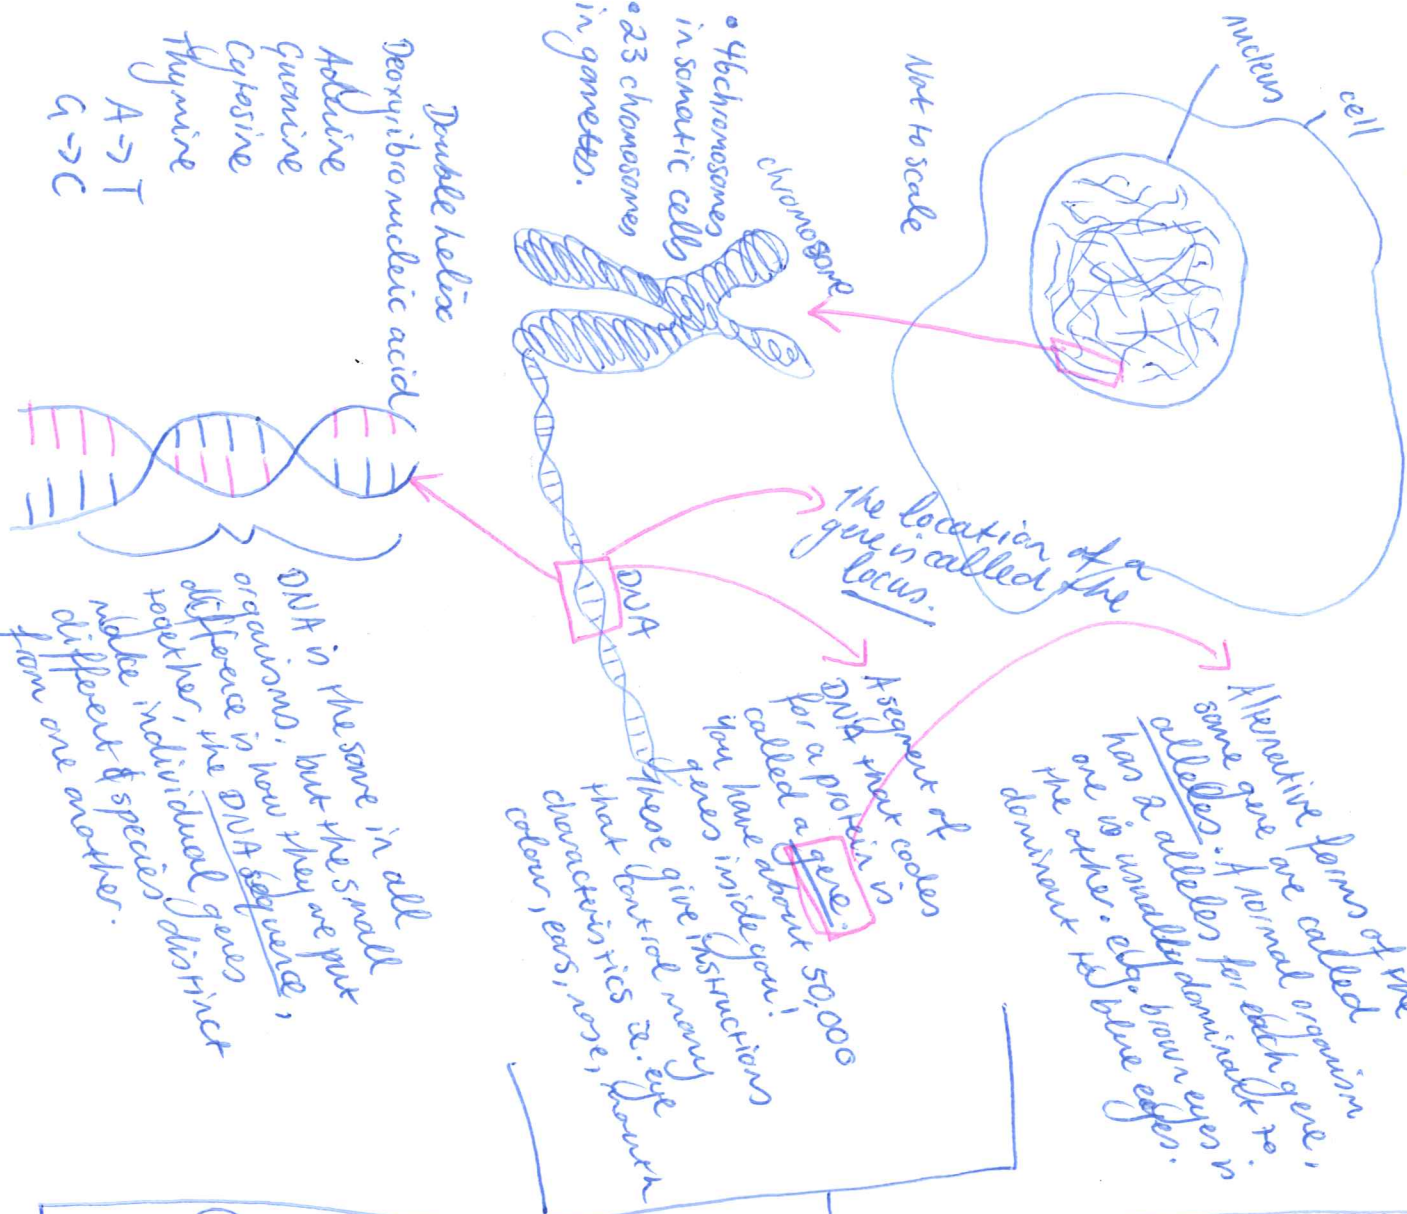 cell
nucleus
Not to scale
chromosome
• 46 chromosomes
in somatic cells
• 23 chromosomes
in gametes.
Double helix
Deoxyribonucleic acid
Adenine
Guanine
Cytosine
Thymine
A -> T
G -> C
The location of a
gene is called the
locus.
DNA
Alternative forms of the
same gene are called
alleles. A normal organism
has 2 alleles for each gene,
one is usually dominant to
the other. e.g. brown eyes is
dominant to blue eyes.
A segment of
DNA that codes
for a protein is
called a gene.
You have about 50,000
genes inside you!
These give instructions
that control many
characteristics ie. eye
colour, ears, nose, mouth
DNA is the same in all
organisms, but the small
difference is how they are put
together, the DNA sequence,
make individual genes
different & species distinct
from one another.